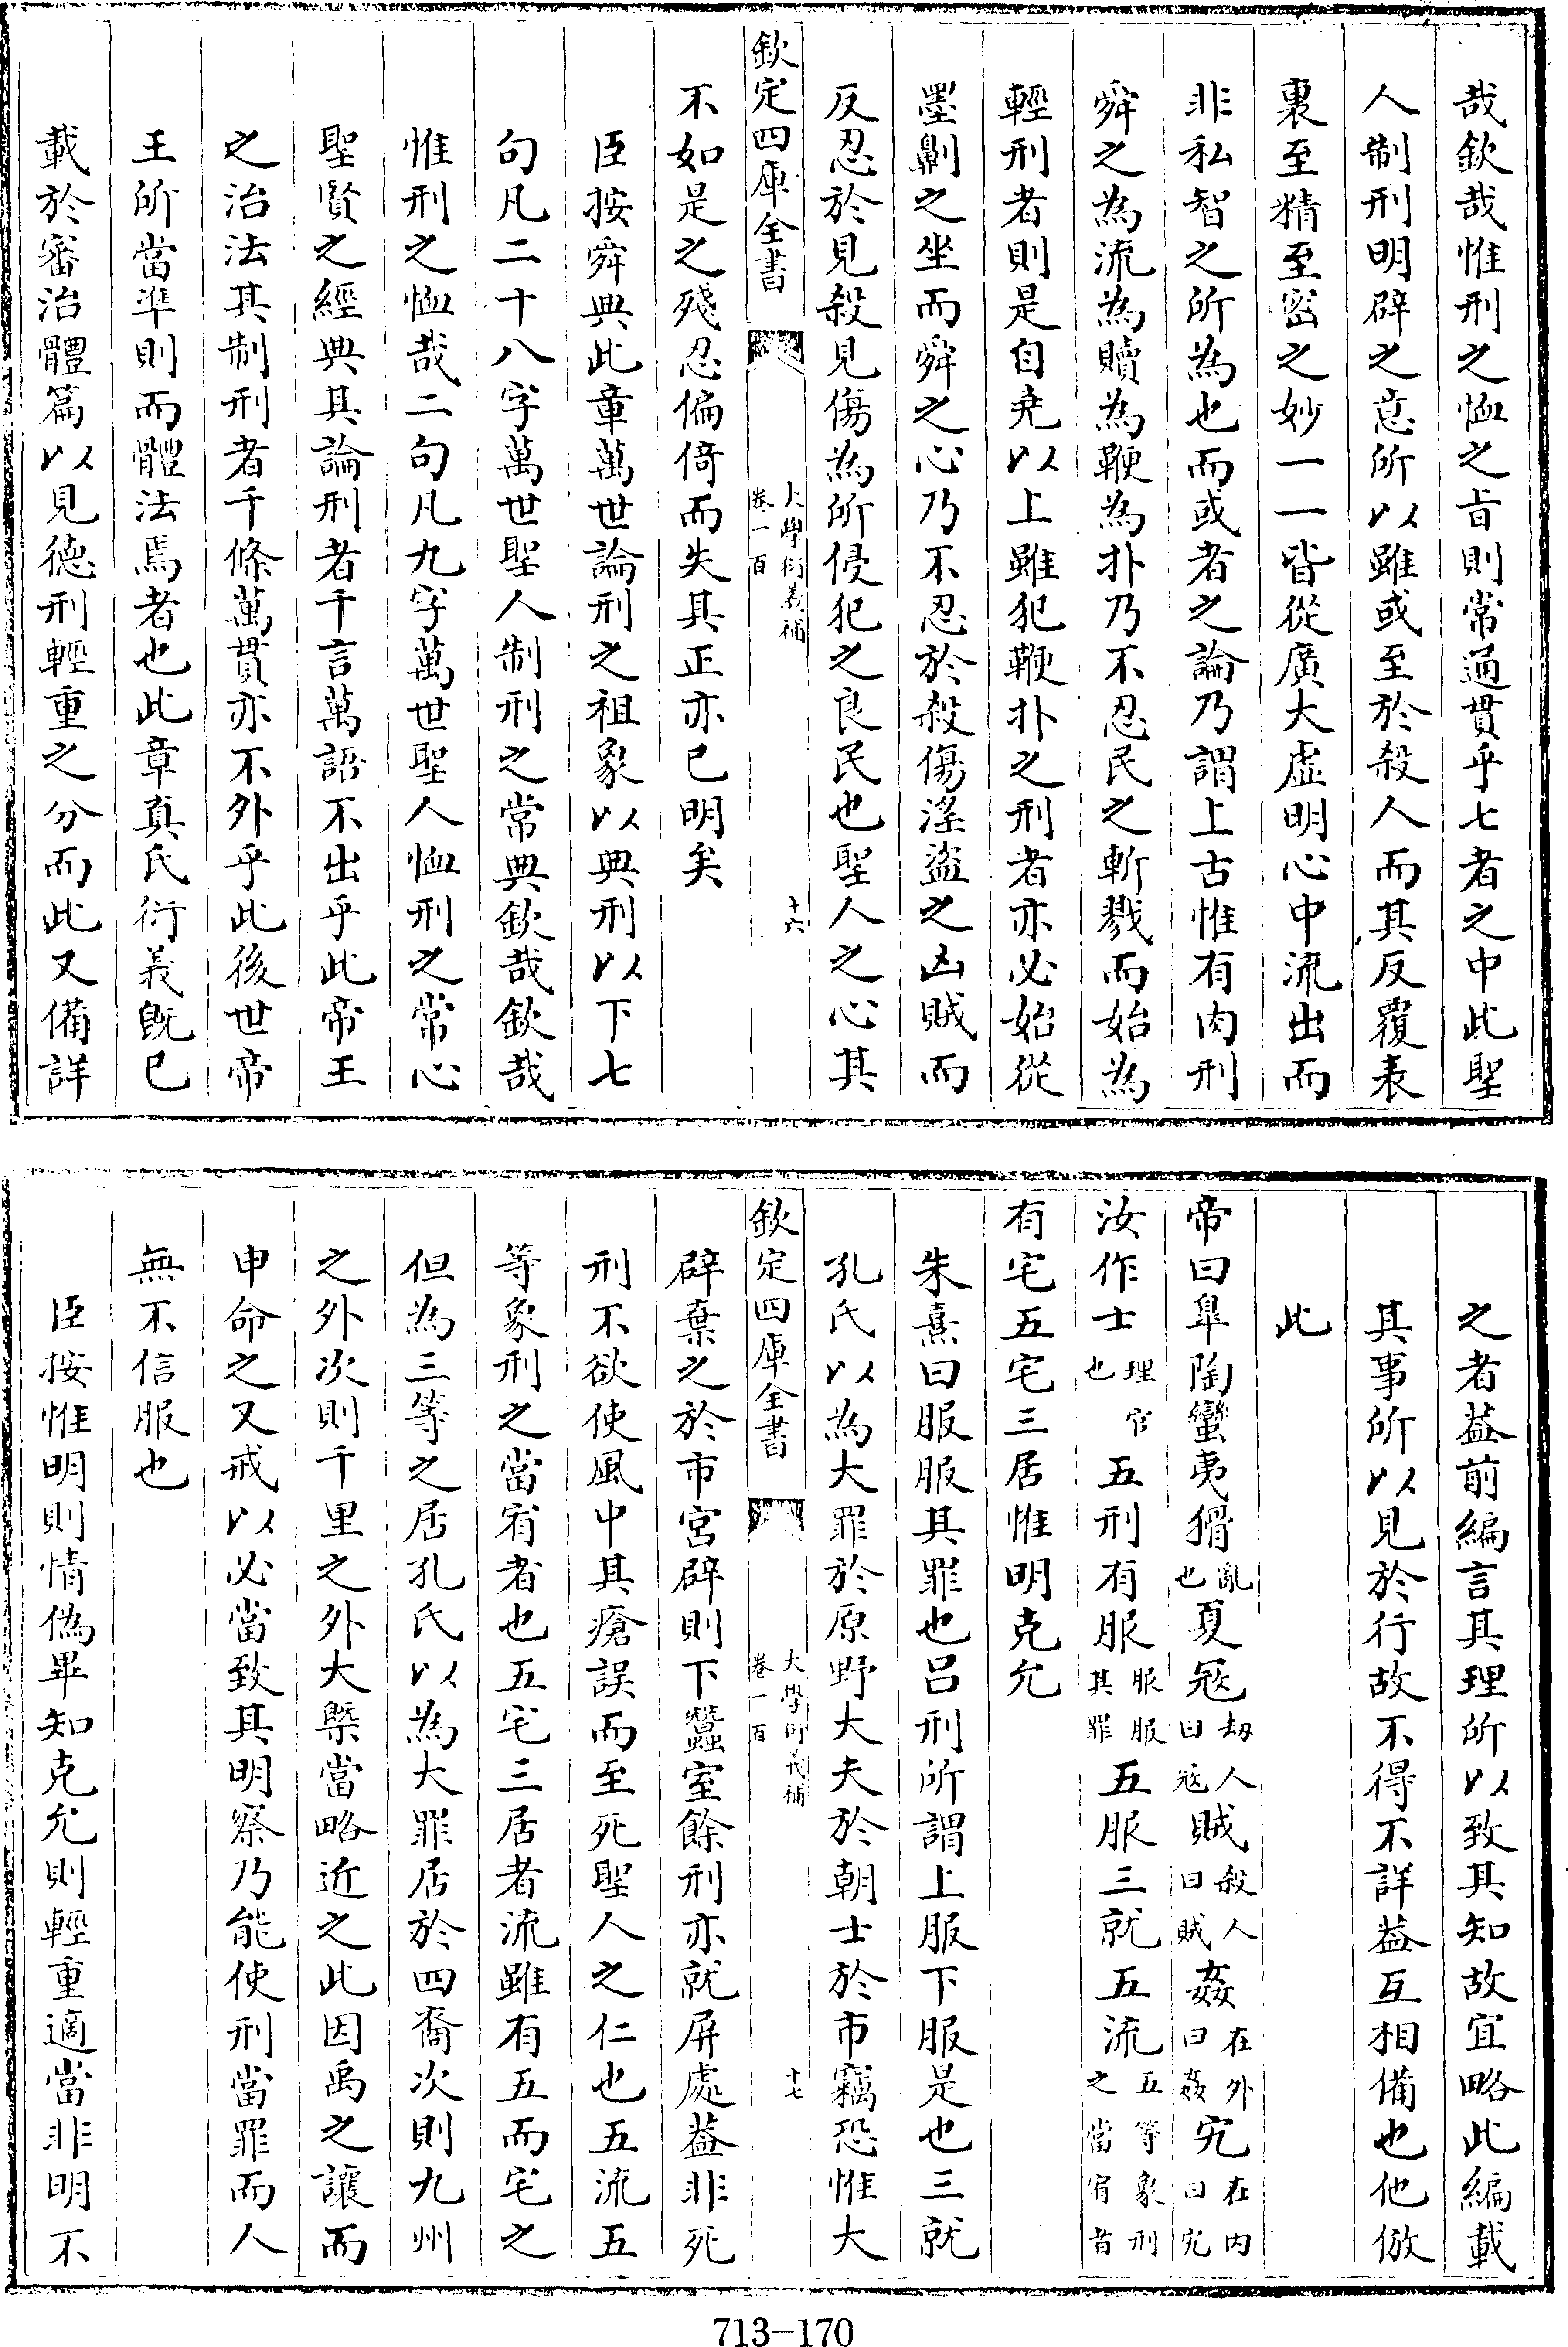 哉欽哉惟刑之恤之㫖則常通貫乎七者之中此聖
人制刑明辟之意所以雖或至於殺人而其反覆表
裏至精至密之妙一一皆從廣大虛明心中流出而
非私智之所為也而或者之論乃謂上古惟有肉刑
舜之為流為贖為鞭為扑乃不忍民之斬戮而始為
輕刑者則是自堯以上雖犯鞭扑之刑者亦必始從
墨劓之坐而舜之心乃不忍於殺傷淫盜之凶賊而
反忍於見殺見傷為所侵犯之良民也聖人之心其
欽定四庫全書
大學衍義補
卷一百
十六
不如是之殘忍偏倚而失其正亦已明矣
臣按舜典此章萬世論刑之祖象以典刑以下七
句凡二十八字萬世聖人制刑之常典欽哉欽哉
惟刑之恤哉二句凡九字萬世聖人恤刑之常心
聖賢之經典其論刑者千言萬語不出乎此帝王
之治法其制刑者千條萬貫亦不外乎此後世帝
王所當準則而體法焉者也此章真氏衍義既已
載於審治體篇以見德刑輕重之分而此又備詳
之者葢前編言其理所以致其知故宜略此編載
其事所以見於行故不得不詳葢互相備也他倣
此
帝曰臯陶蠻夷猾亂也夏寇劫人曰寇賊殺人曰賊姦在外曰姦宄在内曰宄
汝作士理官也五刑有服服服其罪五服三就五流五等象刑之當宥者
有宅五宅三居惟明克允
朱熹曰服服其罪也呂刑所謂上服下服是也三就
孔氏以為大罪於原野大夫於朝士於市竊恐惟大
欽定四庫全書
大學衍義補
卷一百
十七
辟棄之於市宮辟則下蠶室餘刑亦就屏處葢非死
刑不欲使風中其瘡誤而至死聖人之仁也五流五
等象刑之當宥者也五宅三居者流雖有五而宅之
但為三等之居孔氏以為大罪居於四裔次則九州
之外次則千里之外大槩當略近之此因禹之讓而
申命之又戒以必當致其明察乃能使刑當罪而人
無不信服也
臣按惟明則情偽畢知克允則輕重適當非明不
713-170